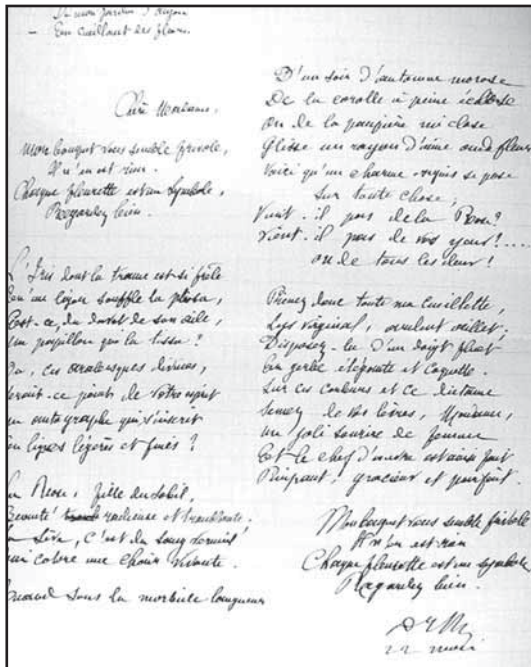 Dans mon jardin d'Anjou
— En cueillant des fleurs.
Chère Madame,
Mon bouquet vous semble frivole,
Il n'en est rien.
Chaque fleurette est un Symbole,
Regardez bien.
L'Iris dont la trame est si frêle
Qu'un léger souffle la plissa,
Est-ce, du duvet de son aile,
Un papillon qui la tissa ?
Ou, ces arabesques divines,
Serait-ce point de votre esprit
Un autographe qui s'inscrit
En lignes légères et fines ?
La Rose, fille du Soleil,
Beauté radieuse et troublante,
La sève, c'est du sang vermeil
Qui colore une chair vivante.
Quand sous la morbide langueur
D'un soir d'automne morose
De la corolle à peine éclose
Ou de la paupière mi close
Glisse un rayon d'âme ou de fleur
Voici qu'un charme exquis se pose
Sur toute chose,
Vient-il pas de la Rose ?
Vient-il pas de vos yeux ?....
ou de tous les deux !
Prenez donc toute ma cueillette,
Lys virginal, œillet,
Disposez-la d'un doigt fluet
En gerbe et coquette.
Sur ces couleurs et ce dictame
Semez de vos lèvres, Madame,
Un joli sourire de femme
Et le chef d'œuvre est ainsi fait
Pimpant, gracieux et parfait.
Mon bouquet vous semble frivole
Il n'en est rien
Chaque fleurette est un symbole
Regardez bien.
22